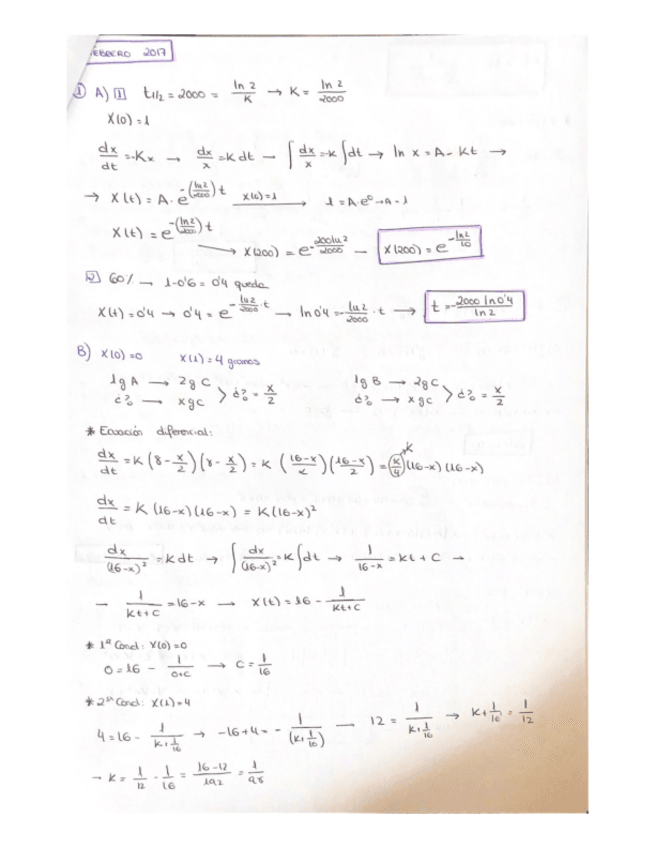 FEBRERO 2017
① A) 1 t1/2 = 2000 = ln 2/K → K = ln 2/2000
X(0) = 1
dx/dt = -Kx → dx/x = -K dt → ∫ dx/x = -K ∫ dt → ln x = A - Kt →
→ X(t) = A · e^-(ln2/2000)t X(0)=1 → 1 = A·e^0 → A = 1
X(t) = e^-(ln2/2000)t
→ X(200) = e^-200ln2/2000 → X(200) = e^-ln2/10
2 60% → 1-0'6 = 0'4 queda
X(t) = 0'4 → 0'4 = e^-ln2/2000·t → ln 0'4 = -ln2/2000 · t → t = -2000 ln 0'4/ln 2
B) X(0) = 0 X(1) = 4 gramos
1g A → 2g C > ¿? = x/2 1g B → 2g C > ¿? = x/2
¿? → x g C ¿? → x g C
* Ecuación diferencial:
dx/dt = K (8 - x/2)(8 - x/2) = K (16-x/2)(16-x/2) = (K/4)(16-x)(16-x) K
dx/dt = K (16-x)(16-x) = K(16-x)²
dx/(16-x)² = K dt → ∫ dx/(16-x)² = K ∫ dt → 1/16-x = Kt + C →
→ 1/Kt+C = 16-x → X(t) = 16 - 1/Kt+C
* 1ª Cond: X(0) = 0
0 = 16 - 1/0+C → C = 1/16
* 2ª Cond: X(1) = 4
4 = 16 - 1/K+1/16 → -16+4 = - 1/(K+1/16) → 12 = 1/K+1/16 → K+1/16 = 1/12
→ K = 1/12 - 1/16 = 16-12/192 = 1/48